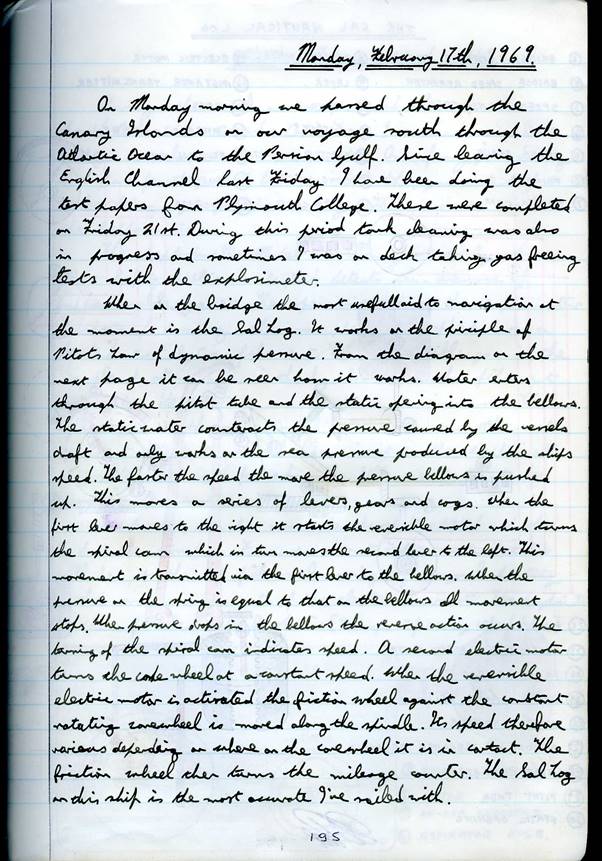 Monday, February 17th, 1969.
On Monday morning we passed through the
Canary Islands on our voyage south through the
Atlantic Ocean to the Persian Gulf. Since leaving the
English Channel last Friday I have been doing the
test papers from Plymouth College. These were completed
on Friday 21st. During this period tank cleaning was also
in progress and sometimes I was on deck taking gas freeing
tests with the explosimeter.
When on the bridge the most usefull aid to navigation at
the moment is the Sal Log. It works on the piriple of
Pitots Law of dynamic pressure. From the diagram on the
next page it can be seen how it works. Water enters
through the pitot tube and the static opening into the bellows.
The static water counteracts the pressure caused by the vessels
draft and only works on the sea pressure produced by the ships
speed. The faster the speed the more the pressure bellows is pushed
up. This moves a series of levers, gears and cogs. When the
first lever moves to the right it starts the reversible motor which turns
the spiral cam which in turn moves the second lever to the left. This
movement is transmitted via the first lever to the bellows. When the
pressure on the spring is equal to that on the bellows all movement
stops. When pressure drops in the bellows the reverse action occurs. The
turning of the spiral cam indicates speed. A second electric motor
turns the cone wheel at a constant speed. When the reversible
electric motor is activated the friction wheel against the constant
rotating conewheel is moved along the spindle. Its speed therefore
various depending on where on the conewheel it is in contact. The
friction wheel then turns the mileage counter. The Sal Log
on this ship is the most accurate I've sailed with.
195